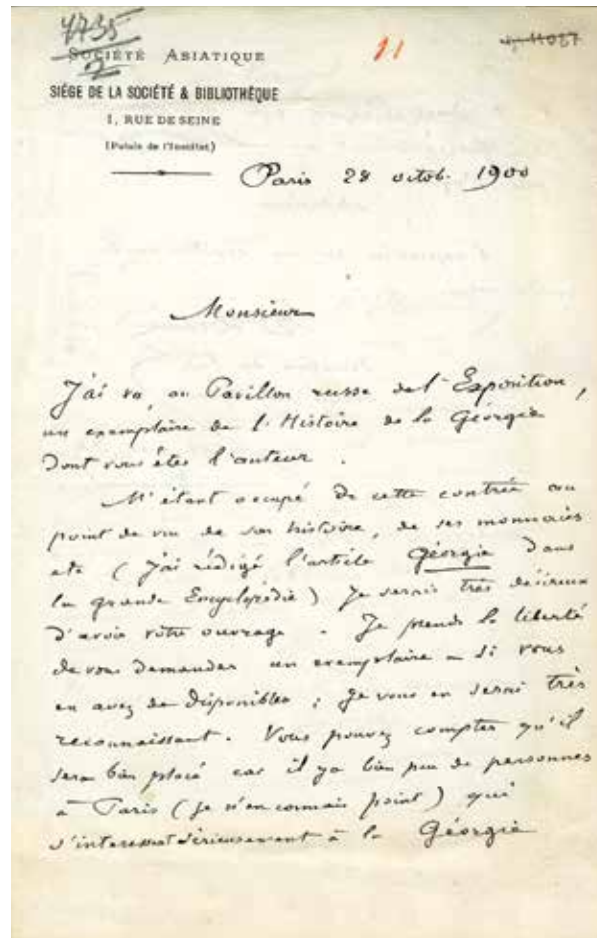 4735
2
SOCIÉTÉ ASIATIQUE
11
SIÉGE DE LA SOCIÉTÉ & BIBLIOTHÈQUE
1, RUE DE SEINE
(Palais de l'Institut)
Paris 28 octob. 1900
Monsieur
J'ai vu, au Pavillon russe de l'Exposition,
un exemplaire de l'Histoire de la Géorgie
dont vous êtes l'auteur.
M'étant occupé de cette contrée au
point de vue de son histoire, de ses monnaies
etc (J'ai rédigé l'article Géorgie dans
la grande Encyclopédie) Je serais très désireux
d'avoir votre ouvrage. Je prends la liberté
de vous demander un exemplaire - si vous
en avez de disponibles ; je vous en serai très
reconnaissant. Vous pouvez compter qu'il
sera bien placé car il y a bien peu de personnes
à Paris (je n'en connais point) qui
s'interessent sérieusement à la Géorgie